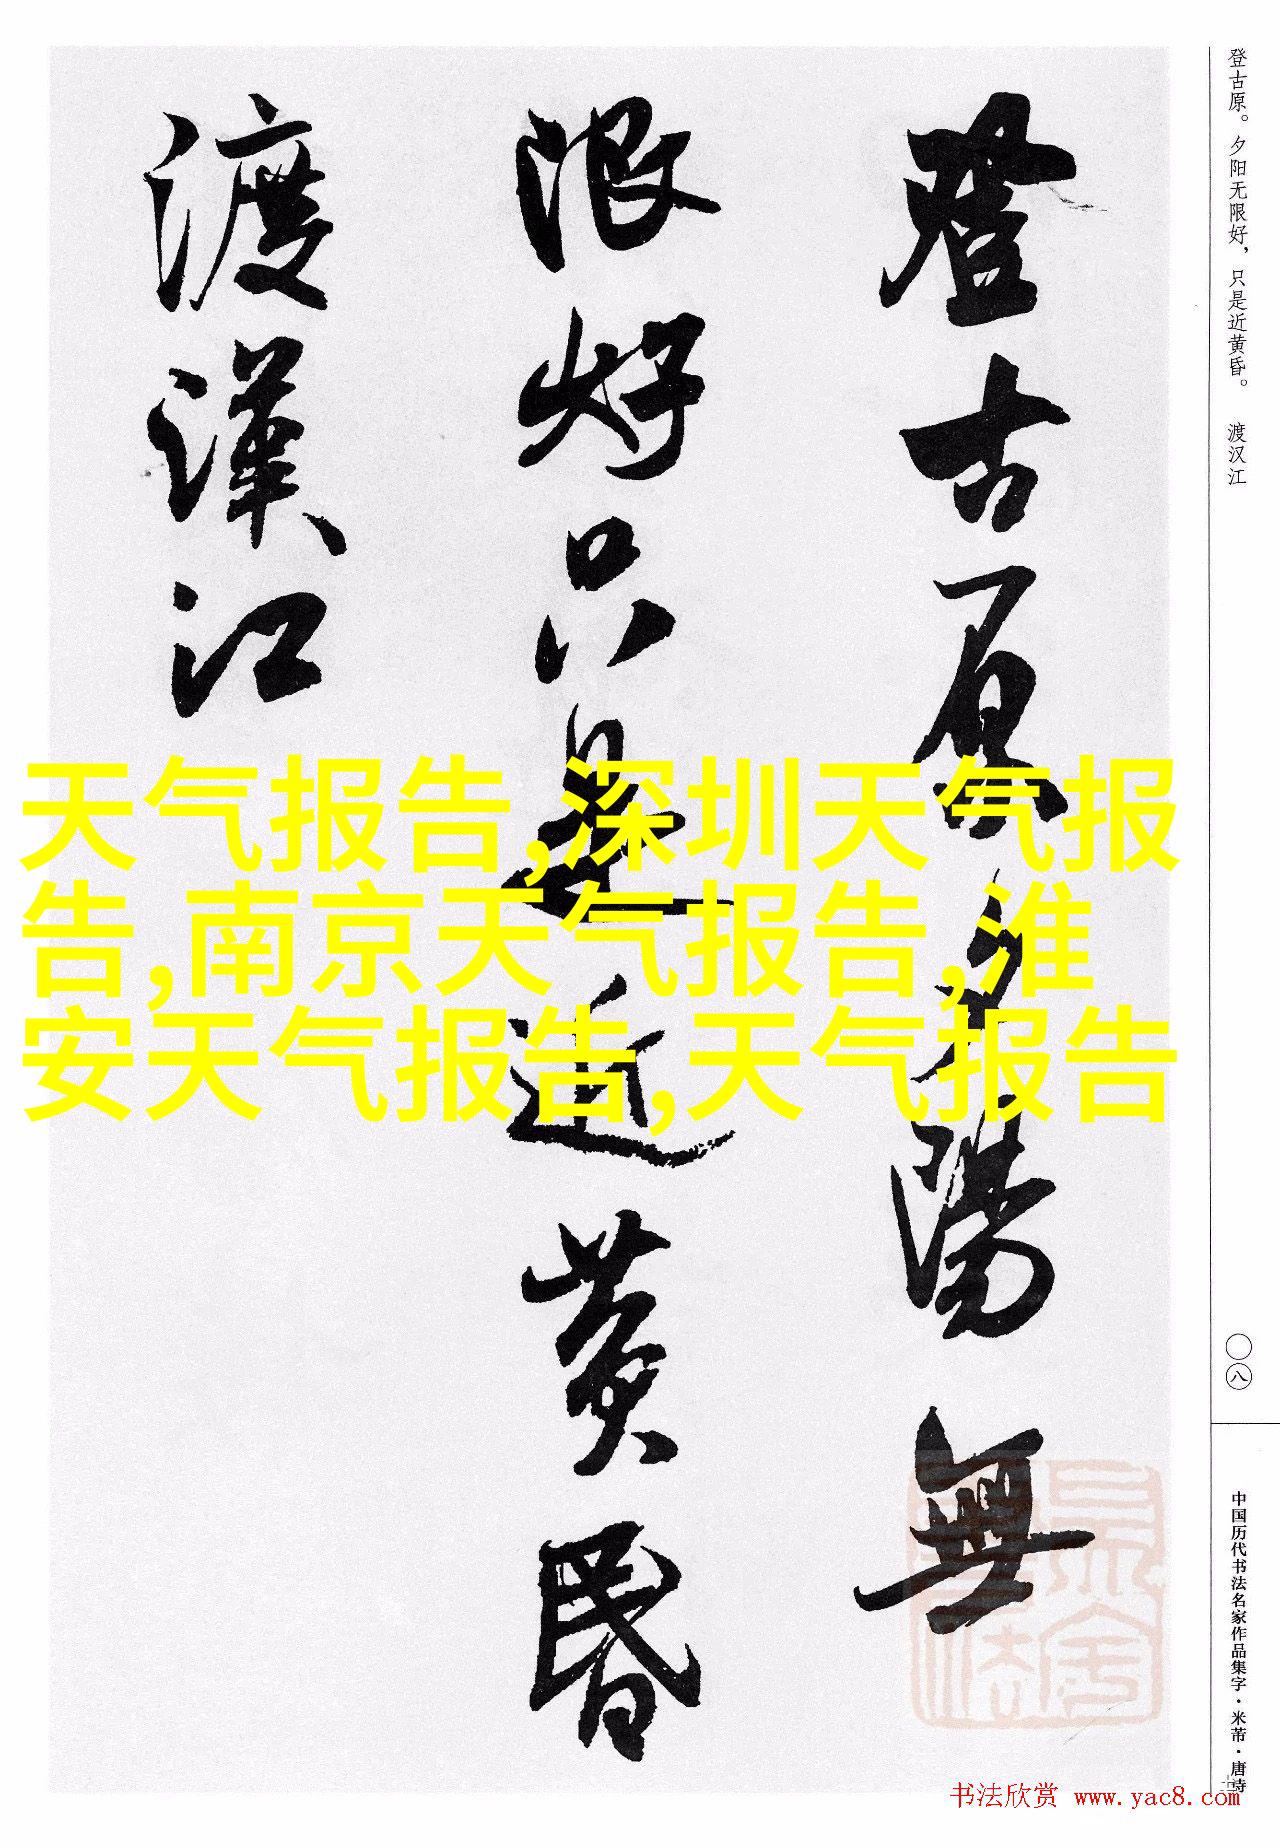 登古原。夕阳无限好，只是近黄昏。 渡汉江
登古原夕陽無
限好只是近黄昏
渡漢江
天气报告,深圳天气报
告,南京天气报告,淮
安天气报告,天气报告
〇八
中国历代书法名家作品集字·米芾·唐诗
书法欣赏 www.yac8.com